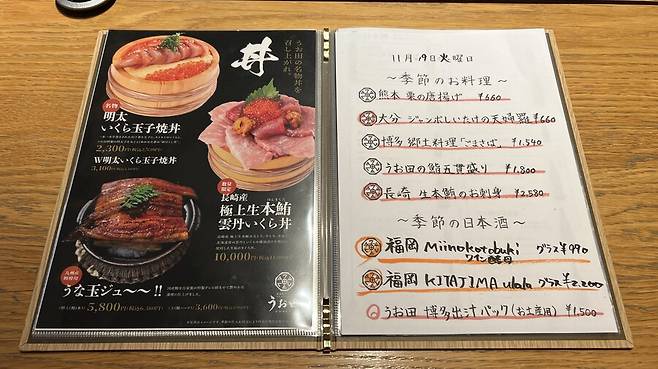 丼
うお田の名物丼を
召し上がれ。
名物
明太
いくら玉子焼丼
2,300円
W明太いくら玉子焼丼
3,100円
数量限定
長崎産
極上生本鮪
雲丹いくら丼
10,000円
九州産鰻使用
うな玉ジュ〜〜!!
5,800円
3,600円
うお田
11月19日火曜日
〜季節のお料理〜
熊本 栗の唐揚げ ¥660
大分 ジャンボしいたけの天婦羅 ¥660
博多 郷土料理"ごまさば" ¥1,540
うお田の鮨五貫盛り ¥1,800
長崎 生本鮪のお刺身 ¥2,580
〜季節の日本酒〜
福岡 Miinokotobuki グラス¥990
ワイン酵母
福岡 KITAJIMA ulala グラス¥2,200
うお田 博多出汁パック(お土産用) ¥1,500